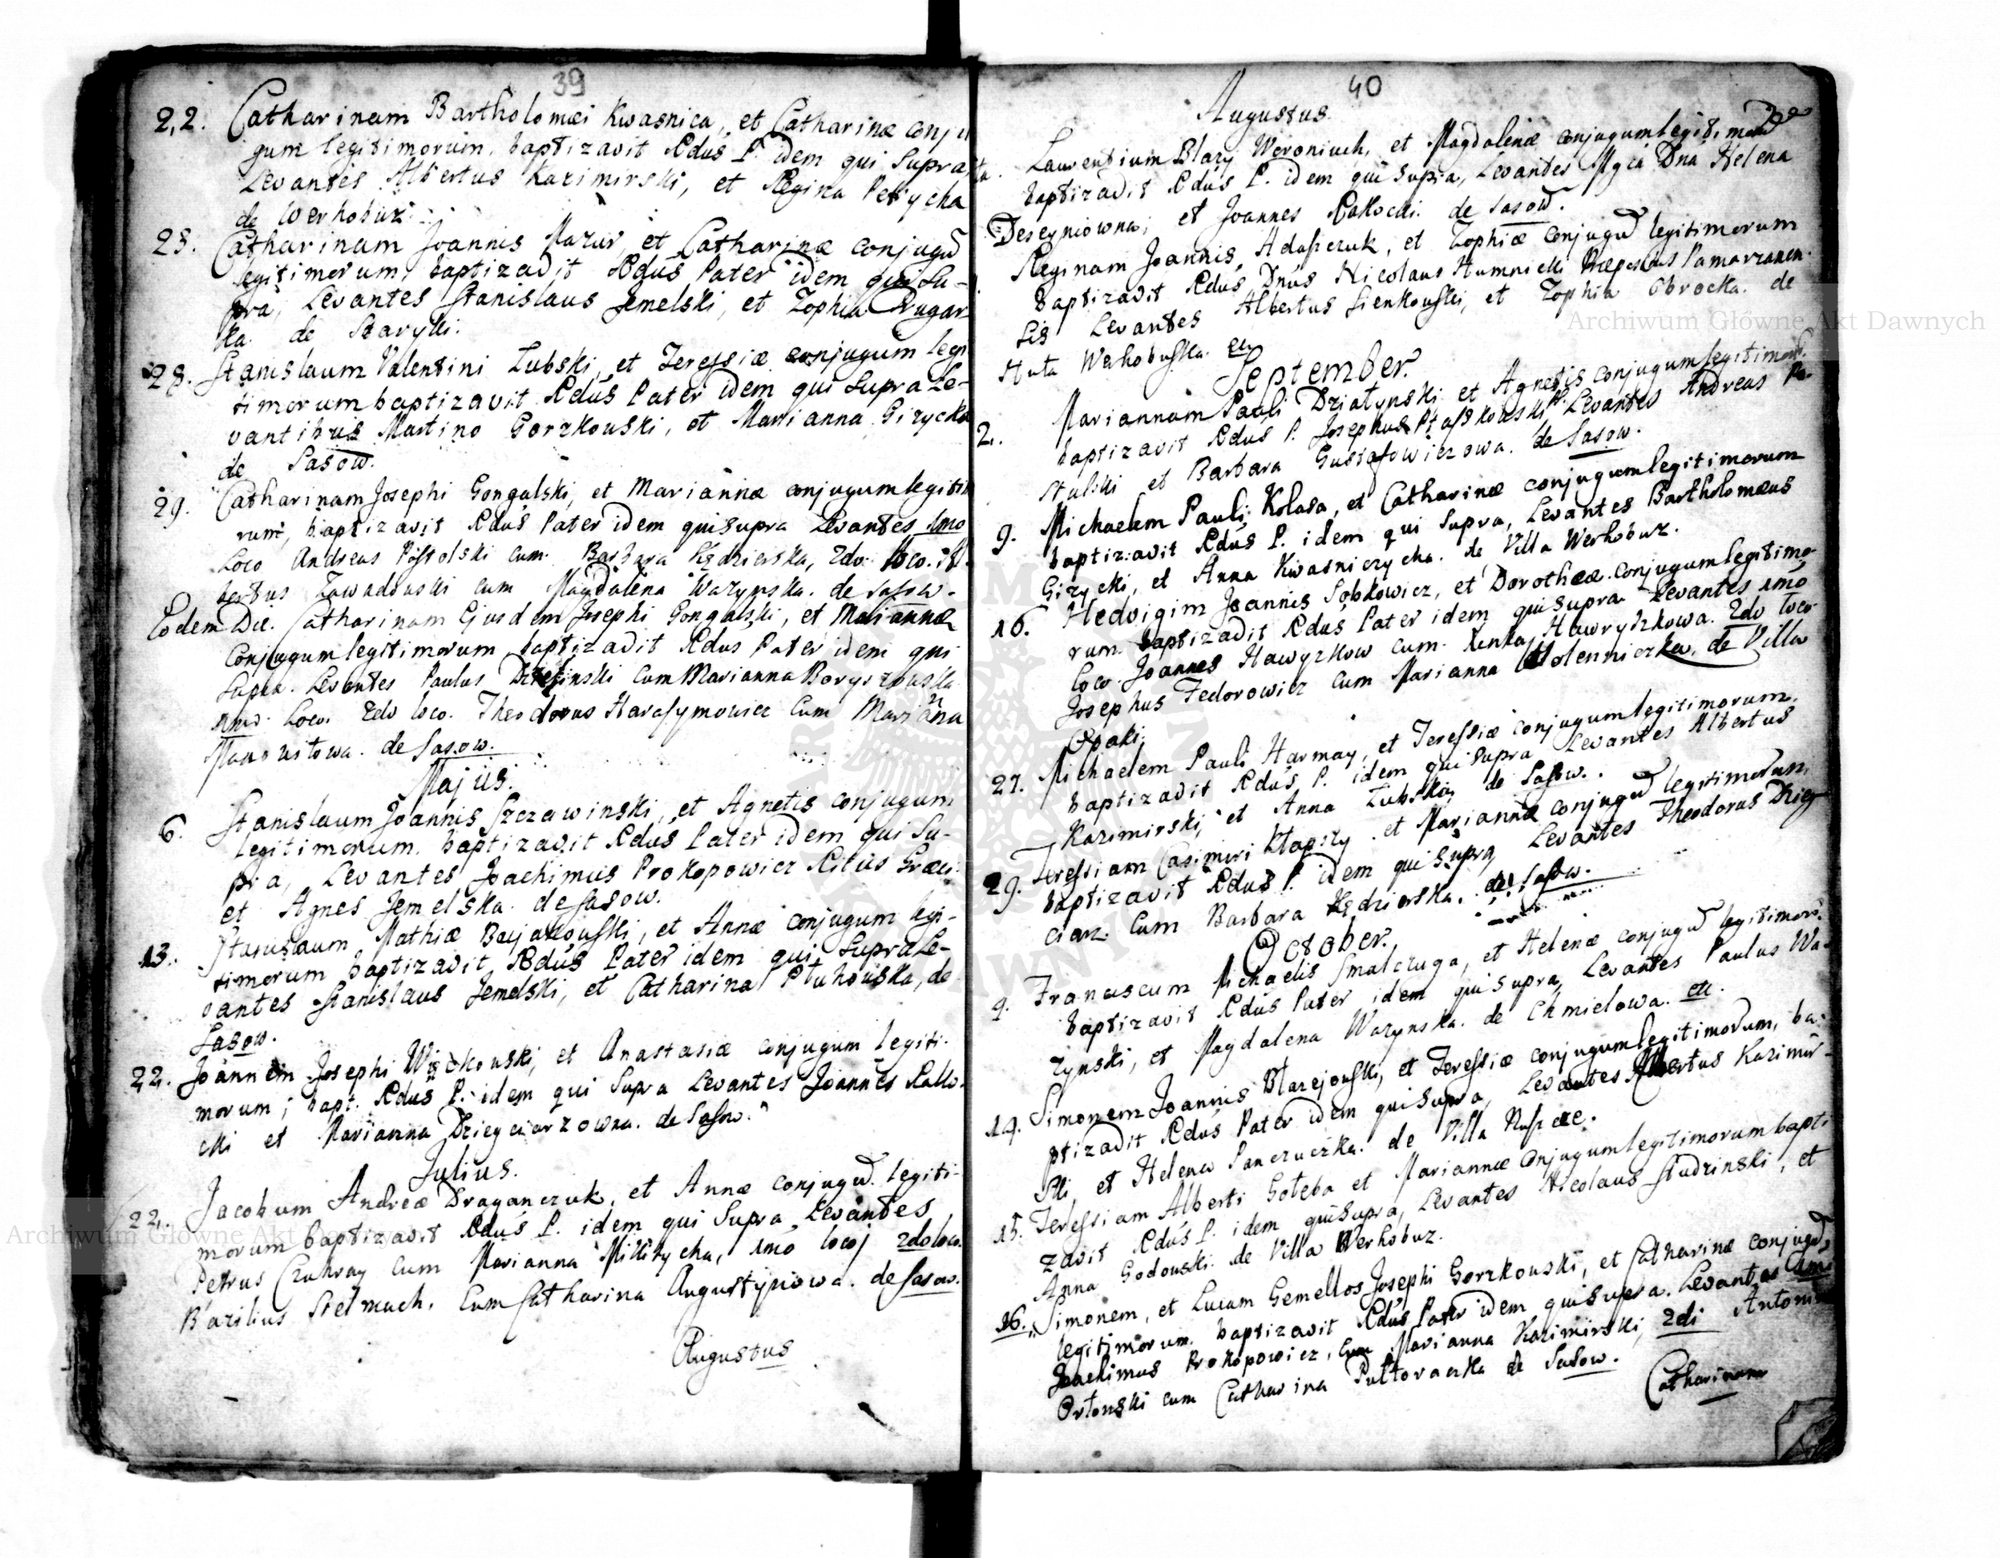 39
22. Catharinam Bartholomæi Kwasnica, et Catharinæ conju
gum legitimorum, baptizavit Rdus P. idem qui supra
Levantes Albertus Kazimirski, et Regina Petrycha
de Werhobuz.
25. Catharinam Joannis Mazur, et Catharinæ conjugũ
legitimorum, baptizavit Rdus Pater idem qui Su-
pra, Levantes Stanislaus Jemelski, et Zophia
ka de Staryki.
28. Stanislaum Valentini Lubski, et Teressiæ conjugum legi
timorum baptizavit Rdus Pater idem qui Supra Le-
vantibus Martino Gorzkouski, et Marianna Gizycka
de Sasow.
29. Catharinam Josephi Gongalski, et Mariannæ conjugum legitim
rum, baptizavit Rdus Pater idem qui supra Levantes 1mo
Loco Andreas Postolski cum Barbara Kędzierska, 2do loco Al
bertus Zawadouski cum Magdalena Wazynska. de Sasow.
Eodem Die. Catharinam Ejusdem Josephi Gongalski, et Mariannæ
Conjugum legitimorum baptizavit Rdus Pater idem qui
supra. Levantes Paulus cum Marianna Boryszouska
1mo Loco. 2do loco. Theodorus Harasymowicz cum Marianna
de Sasow.
Majus.
6. Stanislaum Joannis Szczawinski, et Agnetis conjugum
legitimorum, baptizavit Rdus Pater idem qui Su-
pra, Levantes Joachimus Prokopowicz Ritus Græci
et Agnes Jemelska. de Sasow.
13. Stanislaum Mathiæ et Annæ conjugum legi-
timorum baptizavit Rdus Pater idem qui Supra Le-
vantes Stanislaus Jemelski, et Catharina Ptuhouska, de
Sasow.
22. Joannem Josephi et Anastasiæ conjugum legiti-
morum; bapt. Rdus P. idem qui Supra Levantes Joannes Rallo
cki et Marianna Dziegciarzowna. de Sasow.
Julius.
22. Jacobum Andreæ Draganczuk, et Annæ conjugũ legiti-
morum baptizavit Rdus P. idem qui Supra Levantes
Petrus cum Marianna 1mo loco; 2do loco.
Bazilius Stelmach, cum Catharina Augustynowa. de Sasow.
Augustus
40
Augustus.
Laurentium Blazy Woroniuch, et Magdalenæ conjugum legitimorũ
baptizavit Rdus P. idem qui Supra, Levantes Mgca Dna Helena
et Joannes Rakocki. de Sasow.
Reginam Joannis et Zophiæ conjugũ legitimorum
baptizavit Rdus Dnus Nicolaus Humnicki Pomorzanen
sis Levantes Albertus Sienkouski, et Zophia Obrocka. de
Huta Werhobuska. etc
September.
2. Mariannam Pauli Dziatynski et Agnetis conjugum legitimor.
baptizavit Rdus P. Josephus Levantes Andreas Po-
stulski et Barbara Gustafowiczowa. de Sasow.
9. Michaelem Pauli Kolasa, et Catharinæ conjugum legitimorum
baptizavit Rdus P. idem qui Supra, Levantes Bartholomæus
Gizycki, et Anna Kwasniczycha. de Villa Werhobuz.
16. Hedvigim Joannis Sobkowicz, et Dorotheæ conjugum legitimo-
rum baptizavit Rdus Pater idem qui Supra Levantes 1mo
loco Joannes Hawryzkow cum Xenka Hawryszkowa. 2do loco
Josephus Fedorowicz cum Marianna de Villa
Opaki.
27. Michaelem Pauli Harmay, et Teressiæ conjugum legitimorum.
baptizavit Rdus P. idem qui Supra Levantes Albertus
Kazimirski, et Anna Lubska, de Sasow.
29. Teressiam Casimiri et Mariannæ conjugũ legitimorum,
baptizavit Rdus P. idem qui Supra, Levantes Theodorus Dzieg
ciarz. Cum Barbara Kędzierska. de Sasow.
October.
4. Franciscum Michaelis Smalczuga, et Helenæ conjugũ legitimorũ
baptizavit Rdus Pater idem qui Supra, Levantes Paulus Wa-
zynski, et Magdalena Wazynska. de Chmielowa. etc.
14. Simonem Joannis Blazejouski, et Teressiæ conjugum legitimorum, ba-
ptizavit Rdus Pater idem qui Supra, Levantes Albertus Kazimir-
ski, et Helena Panczuczka. de Villa
15. Teressiam Alberti Goteba et Mariannæ conjugum legitimorum bapti
zavit Rdus P. idem qui Supra, Levantes Nicolaus Studzinski, et
Anna Godouski. de Villa Werhobuz.
16. Simonem, et Lucam Gemellos Josephi Gorzkouski, et Catharinæ conjugũ
legitimorum baptizavit Rdus Pater idem qui Supra. Levantes 1mi
Joachimus Prokopowicz, cum Marianna Kazimirski, 2di Antonius
Ortonski cum Catharina Puttoraczka de Sasow.
Catharinam
Archiwum Główne Akt Dawnych
Archiwum Główne Akt Dawnych